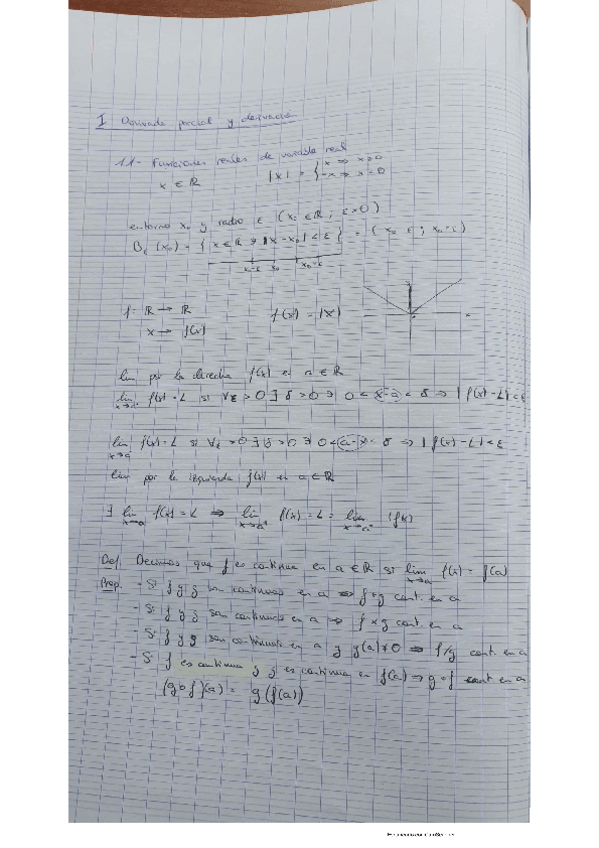 I Derivada parcial y derivación
1.1- Funciones reales de variable real
x ∈ ℝ |x| = { x ⇒ x>0
-x ⇒ x<0
entorno x₀ y radio ε (x₀ ∈ ℝ ; ε>0)
Bε (x₀) = { x ∈ ℝ ∋ |x-x₀| < ε } = (x₀ ε ; x₀-ε)
x-ε x₀ x₀-ε
f: ℝ → ℝ f(x) = |x|
x → f(x)
lim por la derecha f(x) es a ∈ ℝ
lim f(x) = L si ∀ε > 0 ∃ δ > 0 ∋ 0 < x-a < δ ⇒ |f(x)-L| < ε
lim f(x) = L si ∀ε > 0 ∃ δ > 0 ∋ 0 < a-x < δ ⇒ |f(x)-L| < ε
x→a
lim por la izquierda f(x) en a ∈ ℝ
∃ lim f(x) = L ⇒ lim f(x) = L = lim f(x)
x→a x→a⁺ x→a⁻
Def. Decimos que f es continua en a ∈ ℝ si lim f(x) = f(a)
x→a
Prop. - Si f y g son continuas en a ⇒ f+g cont. en a
- Si f y g son continuas en a ⇒ f × g cont. en a
- Si f y g son continuas en a y g(a)≠0 ⇒ f/g cont. en a
- Si f es continua y g es continua en f(a) ⇒ g∘f cont en a
(g∘f)(a) = g(f(a))